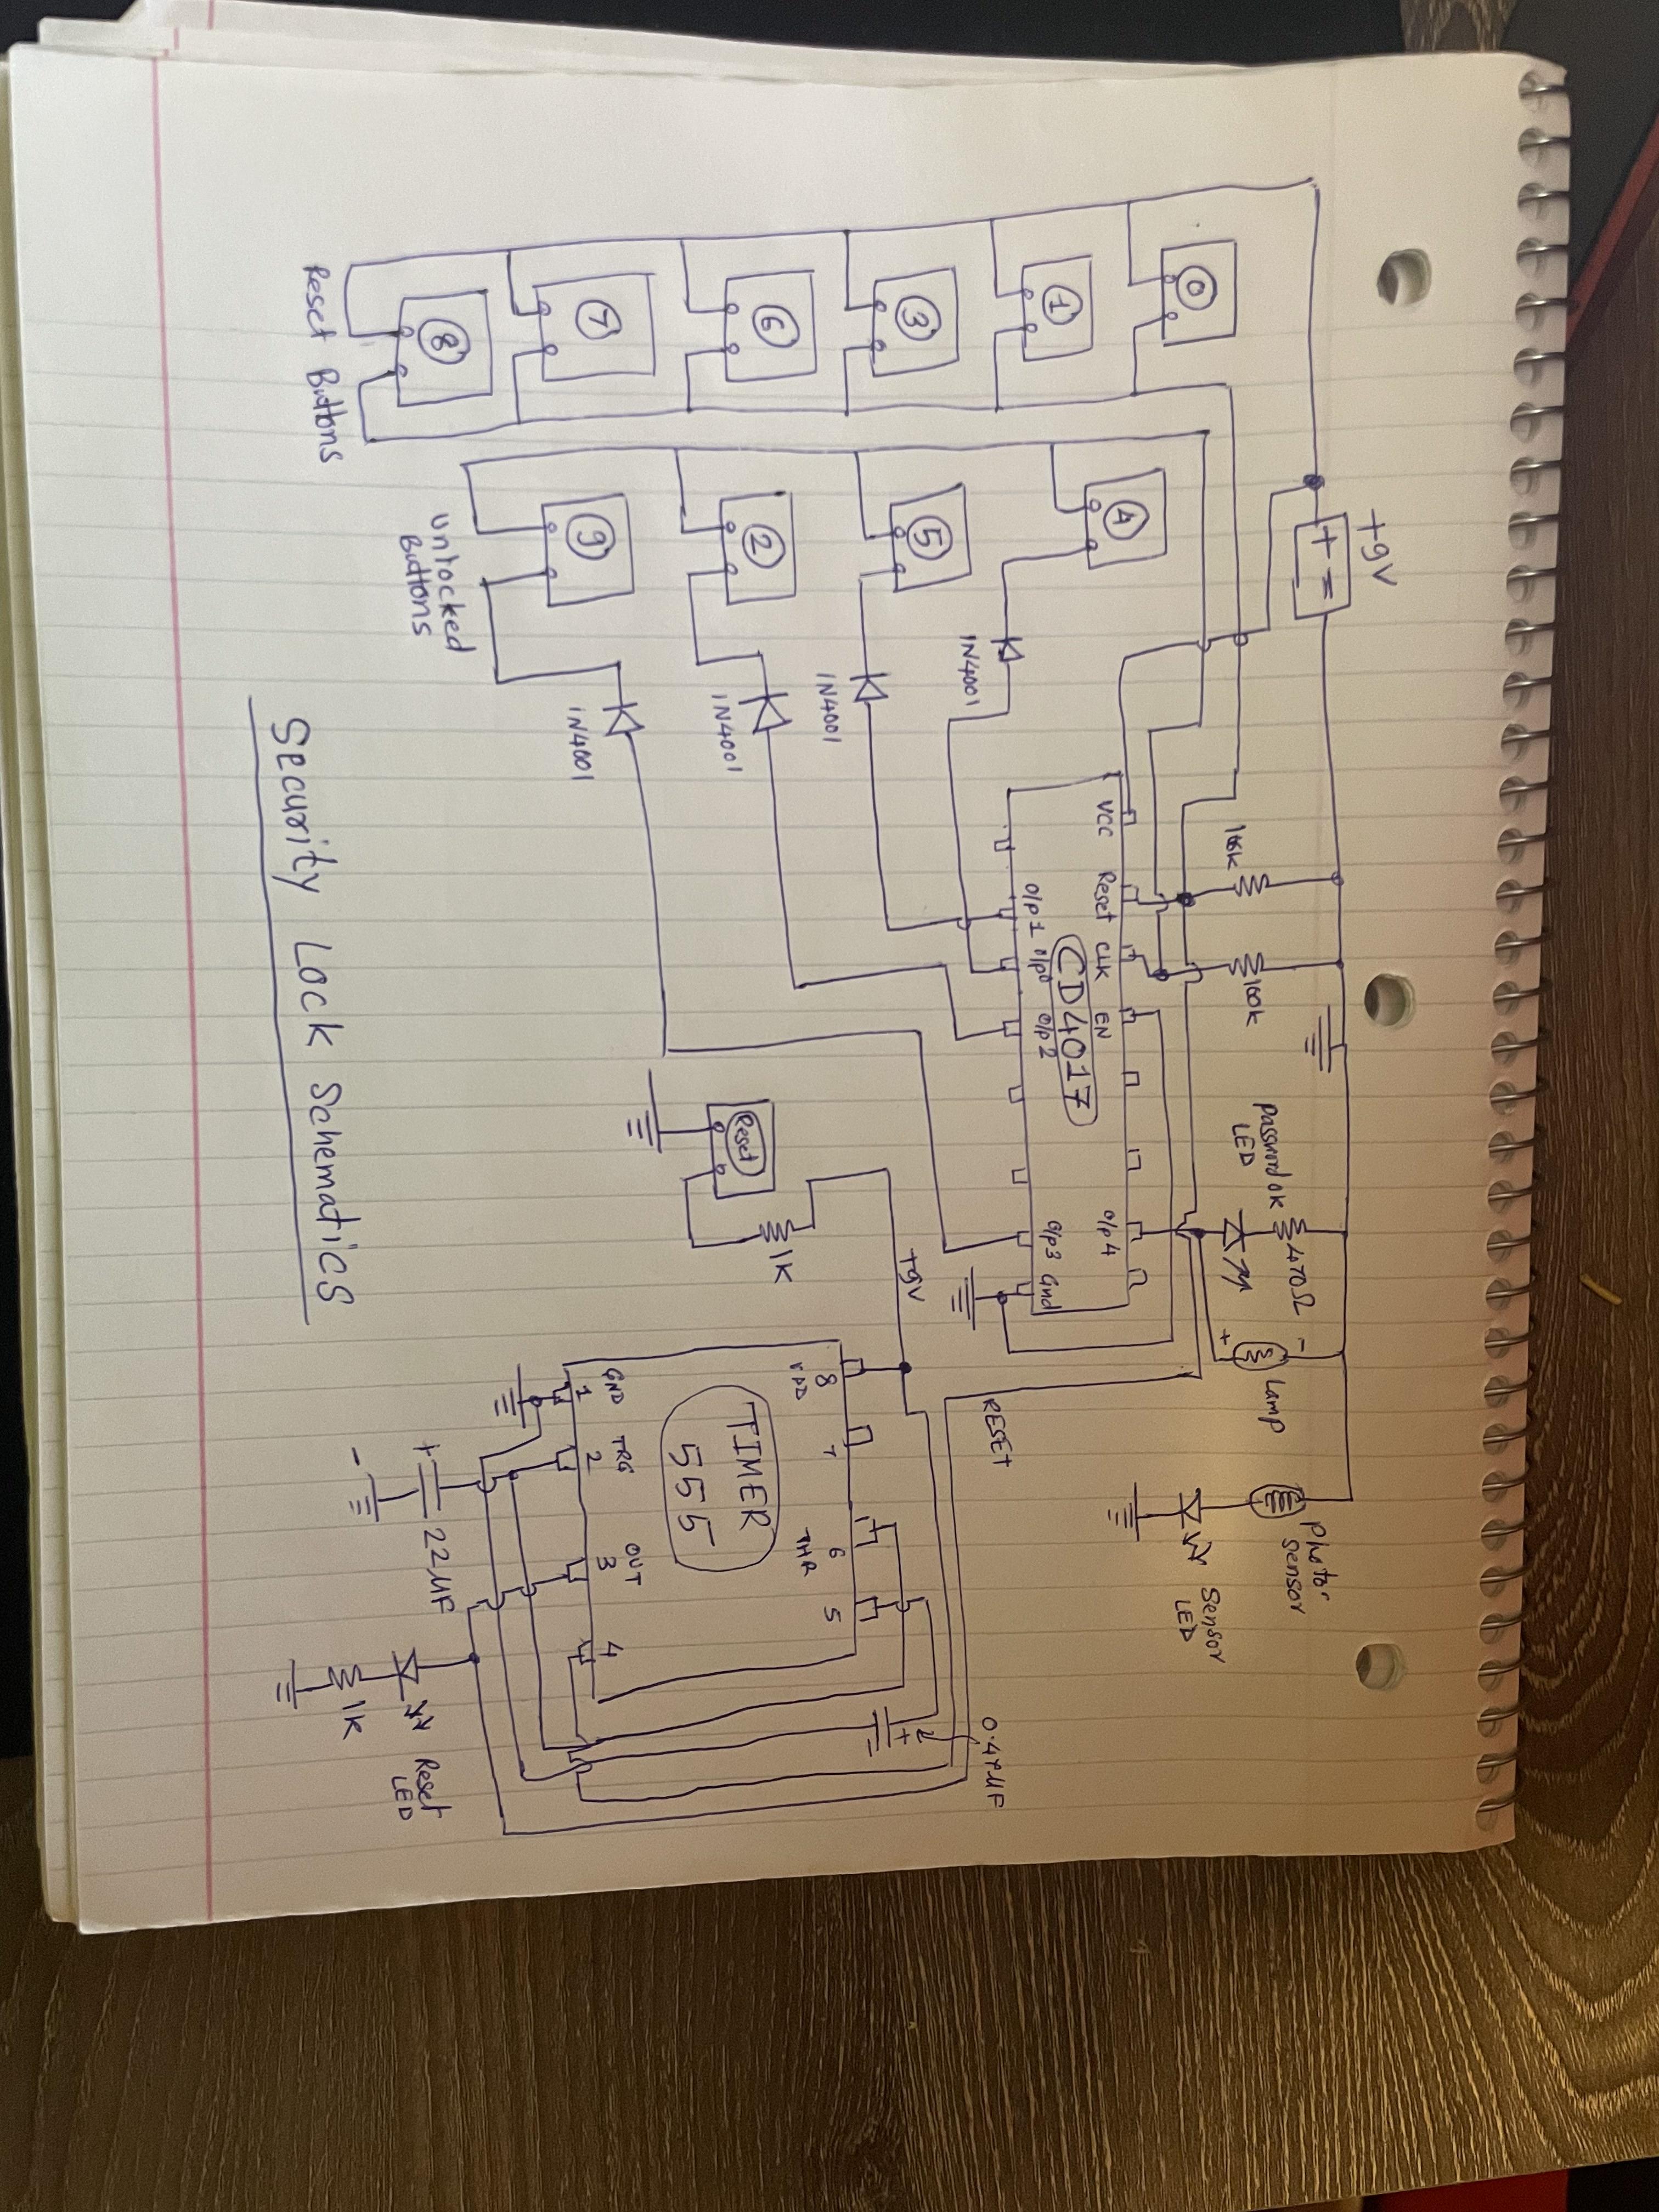 +9V
0
1
3
6
7
8
Reset Buttons
4
5
2
9
Unlocked
Buttons
1N4001
1N4001
1N4001
1N4001
100k
VCC
Reset
CLK
EN
O/P4
CD4017
O/P1
O/P0
O/P2
O/P3
Gnd
Password OK
LED
470Ω
+
-
Lamp
Photor
Sensor
Sensor
LED
Reset
1K
+9V
RESET
8
VDD
7
6
THR
5
TIMER
555
GND
1
TRG
2
OUT
3
4
+
-
22µF
0.47µF
+
1K
Reset
LED
Security Lock Schematics